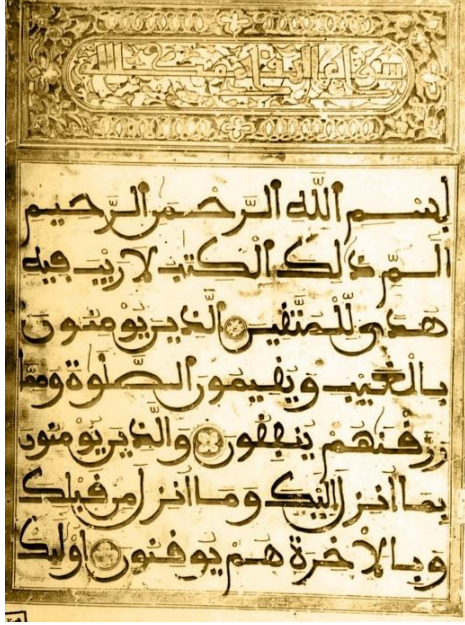 بِسْمِ اللَّهِ الرَّحْمَنِ الرَّحِيمِ
الَمِّ ذَلِكَ الْكِتَبُ لَا رَيْبَ فِيهِ
هُدًى لِّلْمُتَّقِينَ الَّذِينَ يُومِنُونَ
بِالْغَيْبِ وَيُقِيمُونَ الصَّلَوةَ وَمِمَّا
رَزَقْنَهُمْ يُنفِقُونَ وَالَّذِينَ يُومِنُونَ
بِمَا أُنزِلَ إِلَيْكَ وَمَا أُنزِلَ مِن قَبْلِكَ
وَبِالَاخِرَةِ هُمْ يُوقِنُونَ أُوْلَئِكَ